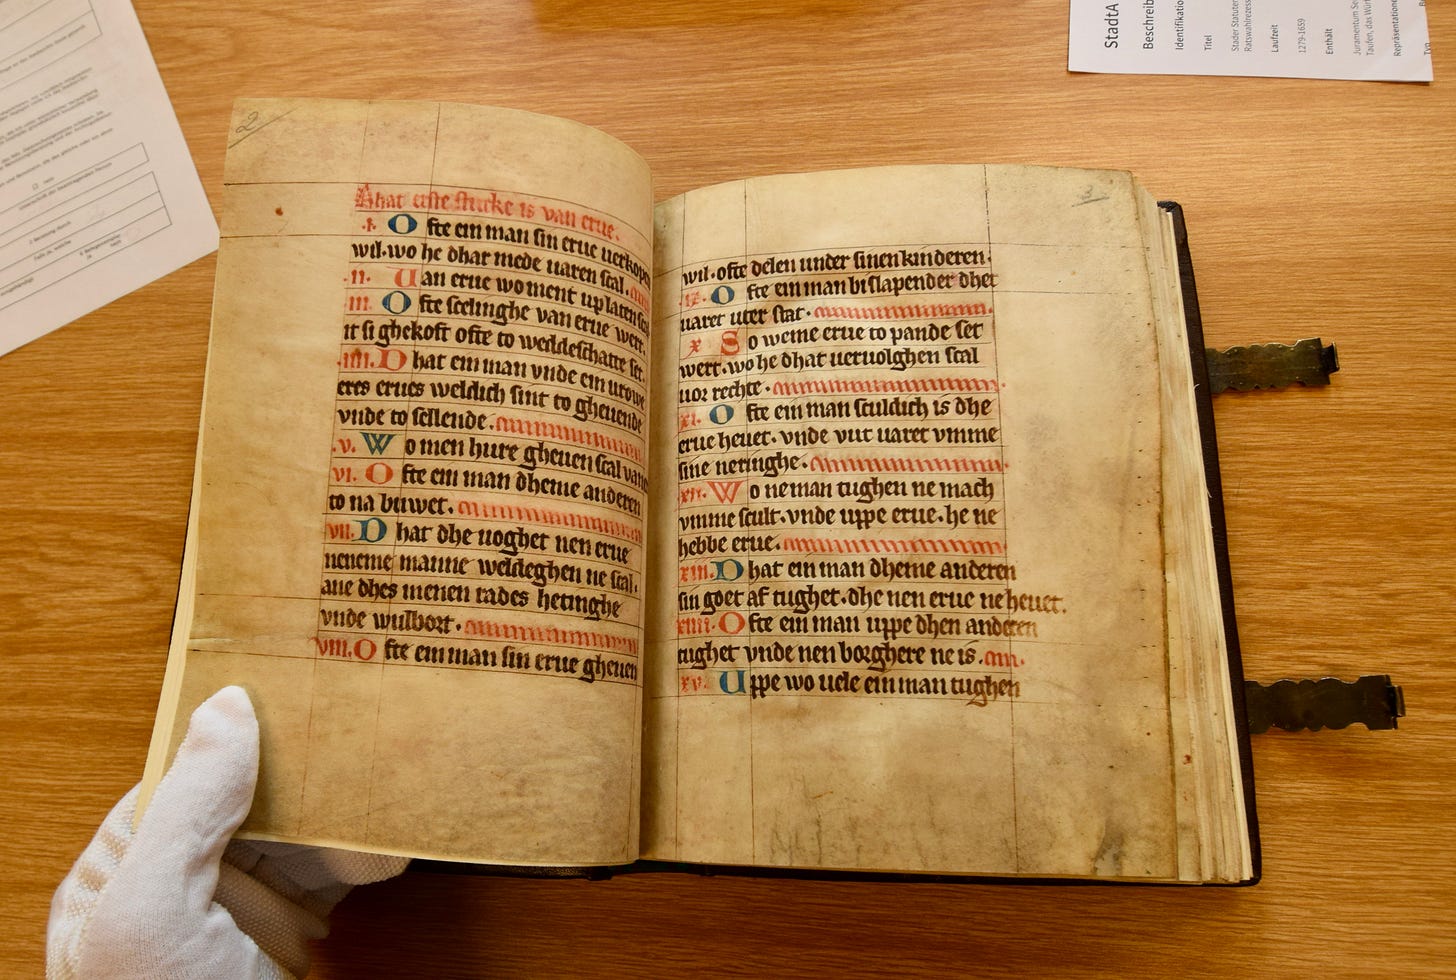 2
Dhat erste stucke is van erue.
.i. Ofte ein man sin erue uerkopen
wil. wo he dhar mede uaren scal.
.ii. Uan erue wo ment up laten scal
.iii. Ofte scelinghe van erue wert.
it si ghekoft ofte to weddeschatte set.
.iiii. Dhat ein man vnde ein urowe
eres erues weldich sint to gheuende
vnde to sellende.
.v. Wo men hure gheuen scal van
.vi. Ofte ein man dheme anderen
to na buwet.
.vii. Dhat dhe uoghet nen erue
neneme manne weldeghen ne scal.
ane dhes menen rades hetinghe
vnde wulbort.
.viii. Ofte ein man sin erue gheuen
3
wil. ofte delen under sinen kinderen.
ix. Ofte ein man bi slapender dhet
uaret uter stat.
x So weme erue to pande set
wert. wo he dhat ueruolghen scal
uor rechte.
xi. Ofte ein man sculdich is dhe
erue heuet. vnde vut uaret vmme
sine neringhe.
xii. Wo neman tughen ne mach
vmme scult. vnde uppe erue. he ne
hebbe erue.
xiii. Dhat ein man dheme anderen
sin goet af tughet. dhe nen erue ne heuet.
xiiii. Ofte ein man uppe dhen anderen
tughet vnde nen borghere ne is.
xv. Uppe wo uele ein man tughen
StadtA
Beschreib
Identifikatio
Titel
Stader Statuten
Ratswahlrezess
Laufzeit
1279-1659
Enthält
Juramentum Se
Taufen, das Würt
Repräsentation
Typ